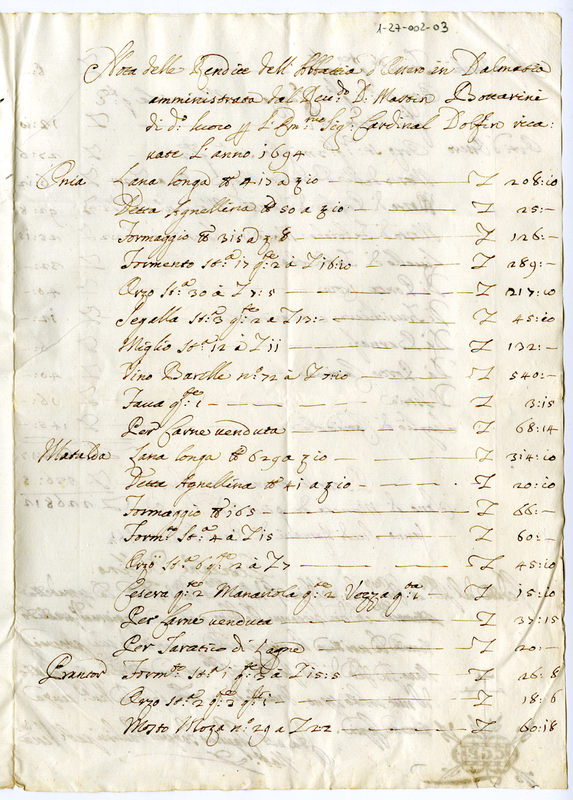 1-27-002-03
Nota delle Rendite dell' Abbatia d'Ossero in Dalmatia
amministrata dal Reu:do D: Martin Bottarini
di d:o luoco
Sig:r Cardinal Dolfin rica-
uate L'anno 1694
Lana longa ℔ 417 a β 10 — L 208:10
Detta Agnellina ℔ 50 a β 10 — L 25:—
Formaggio ℔ 315 a β 8 — L 126:—
Formento st:a 17 q:te 2 à L 16:10 — L 289:—
Orzo st:a 30 à L 7:5 — L 217:10
Segalla st:a 3 q:te 2 a L 13:— L 45:10
Miglio st:a 12 à L 11 — L 132:—
Vino Barille n:o 72 à L 7:10 — L 540:—
Faua q:te 1 — L 3:15
Per Carne venduta — L 68:14
Matalda Lana longa ℔ 629 a β 10 — L 314:10
Detta Agnellina ℔ 41 a β 10 — L 20:10
Formaggio ℔ 165 — L 66:—
Form:to St:a 4 à L 15 — L 60:—
Orzo st:a 6 q:te 2 à L 7 — L 45:10
q:te 2 q:te 2 Vezza q:ta 1 — L 15:10
Per Carne venduta — L 37:15
Per di Legne — L 20:—
Form:to St:a 1 q:te L 15:5 — L 26:8
Orzo st:a 2 q:te 2 — L 18:6
Mosto Moza n:o 29 a L 22 — L 60:18